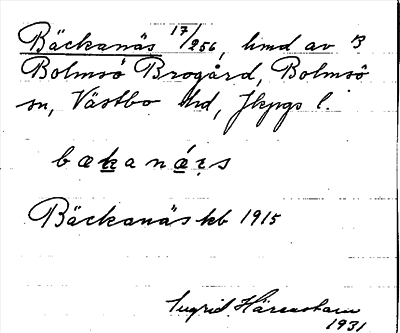 Bäckanäs 17/256, lmd av 3
Bolmsö Brogård, Bolmsö
sn, Västbo hd, Jkpgs l.
bækanæ̀s
Bäckanäs kb 1915
Ingrid Härenstam
1931